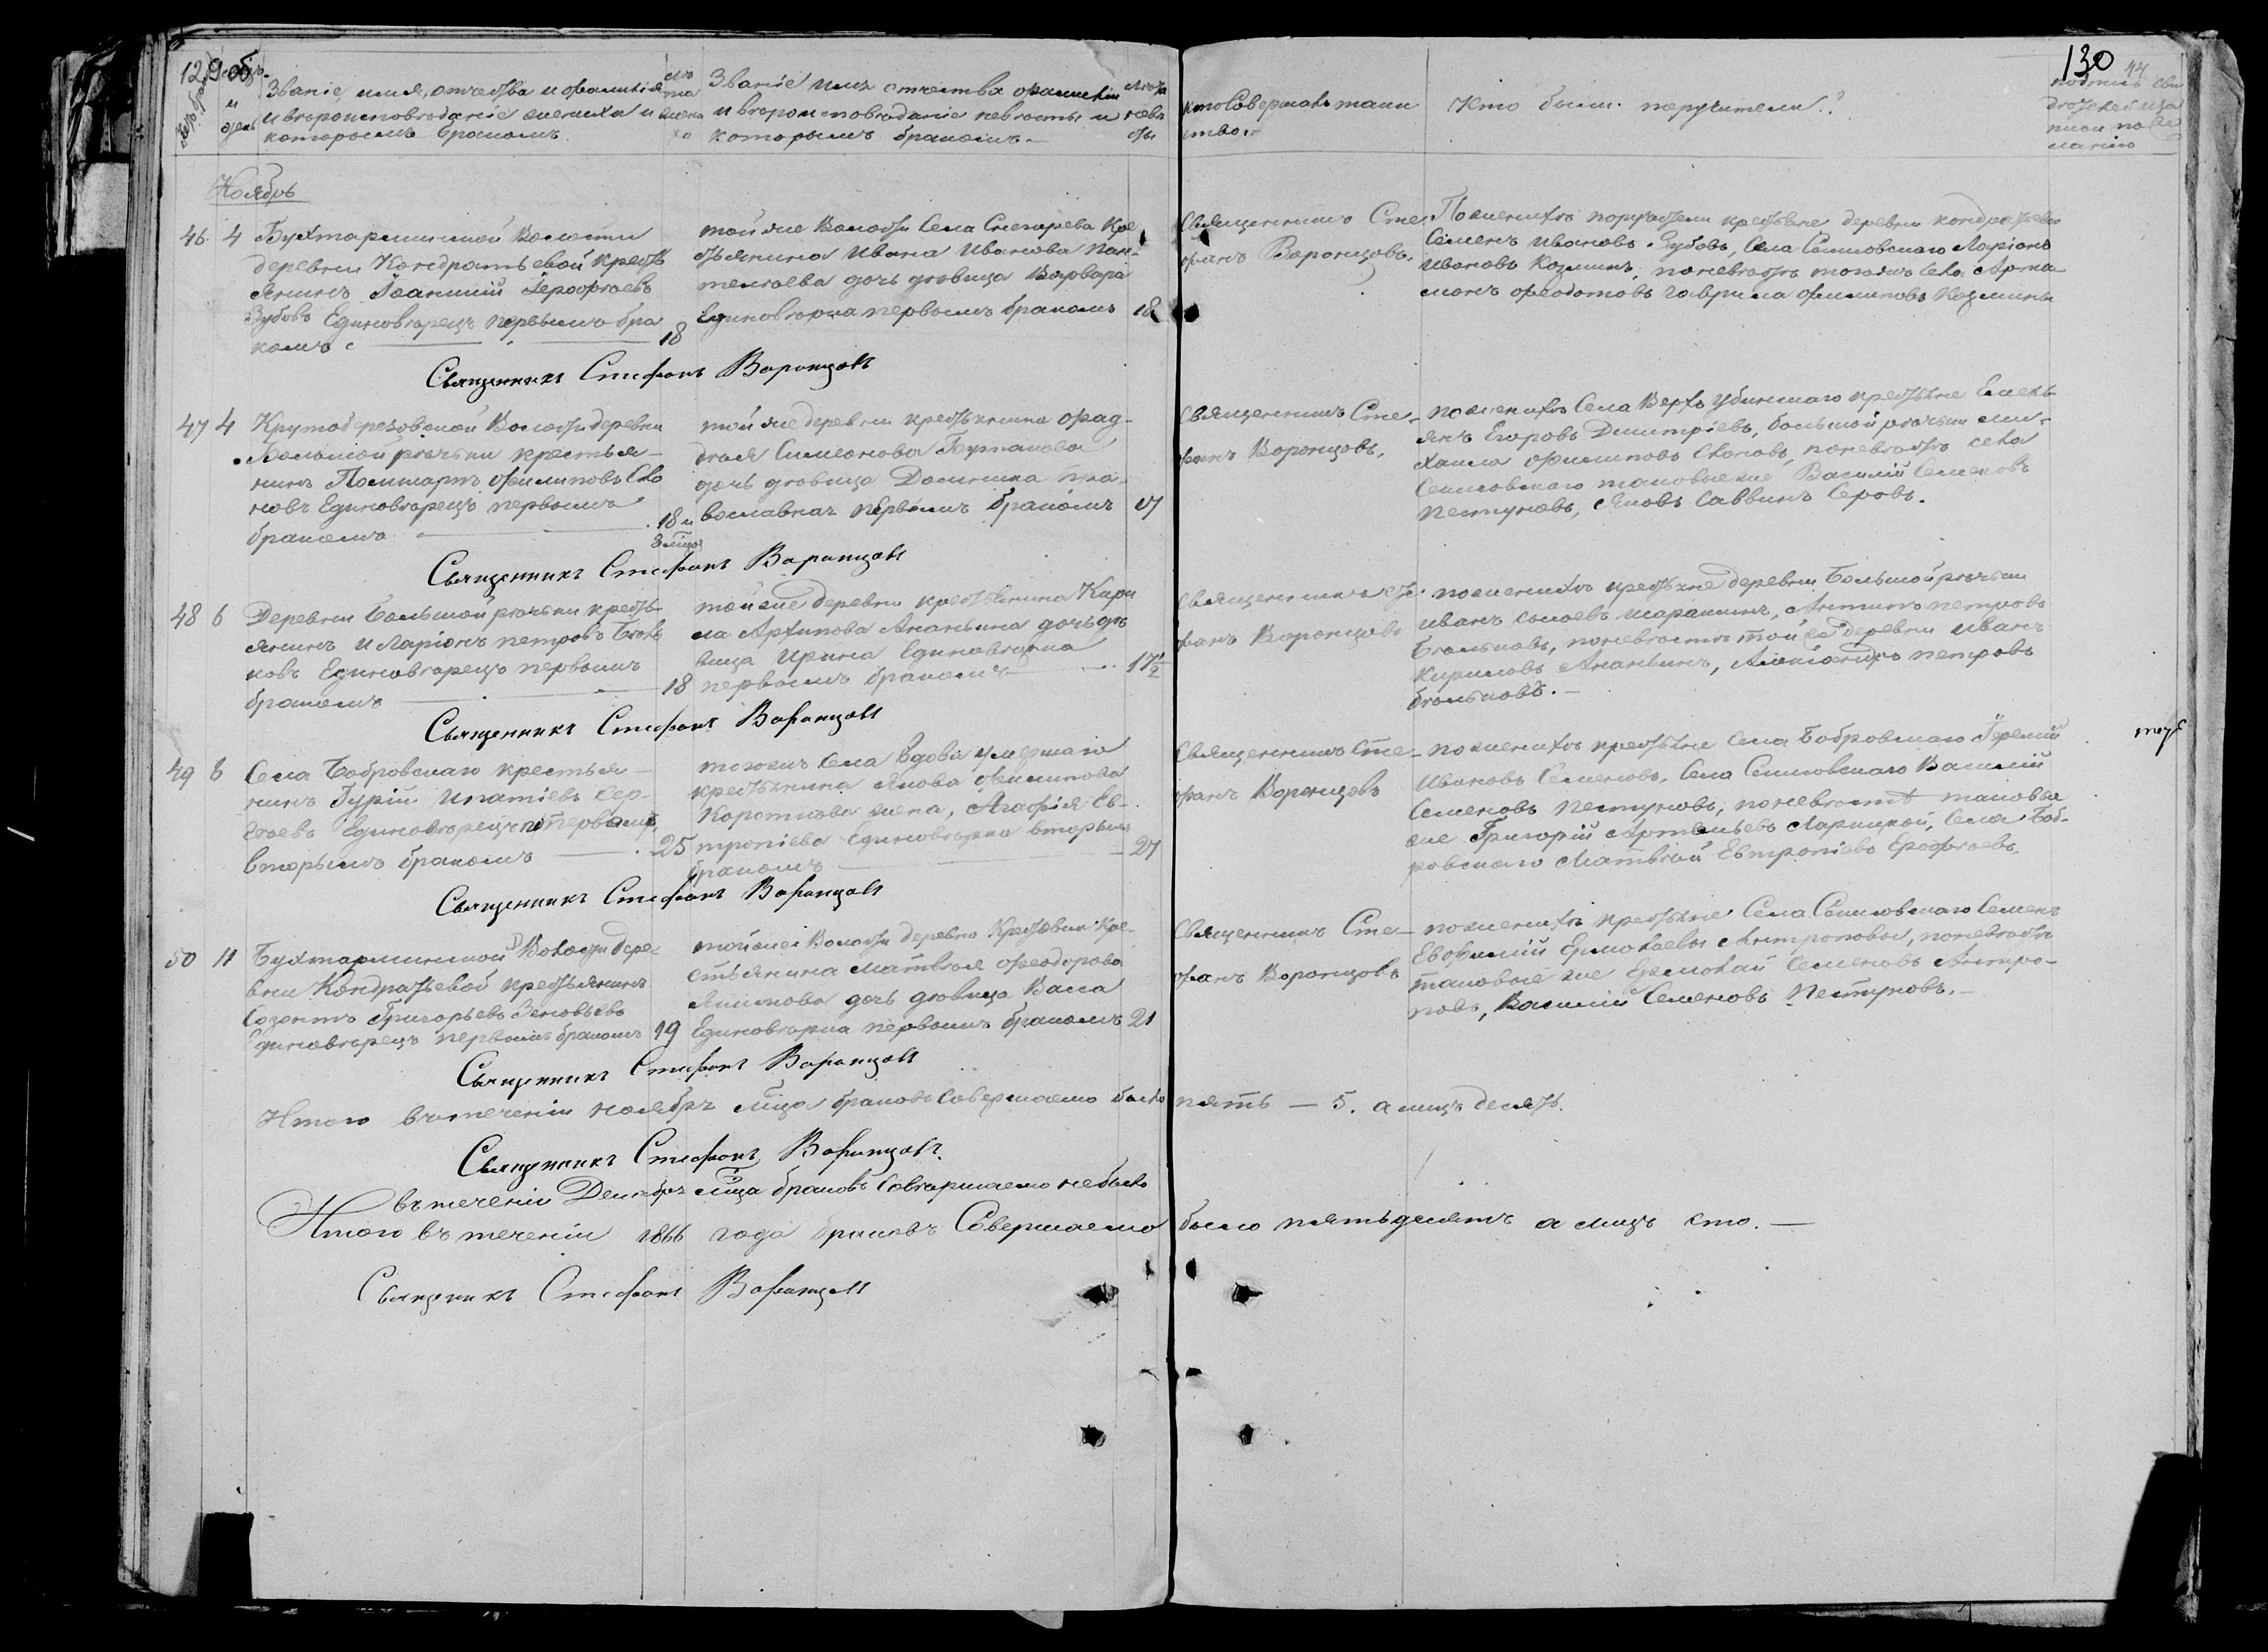 129 об.
130
44
Мсцъ и день
Званіе, имя, отчество и фамилія
и вѣроисповѣданіе жениха и
которымъ бракомъ.
лѣта жениха
Званіе имя отчества фамилія
и вѣроисповѣданіе невѣсты и
которымъ бракомъ.—
лѣта невѣсты
кто Совершалъ таин
ство.
Кто были поручители?
подпись сви
дѣтелей иза
писи по же
ланію
Ноябрь
46. 4 Бухтарминской Волости
деревни Кондратьевой кресть
янинъ Іоанний Іерофѣевъ
Зубовъ Единовѣрецъ первымъ бра
комъ 18
той же Волости Села Снегирева Кре
стьянина Ивана Иванова Пан-
телѣева дочь дѣвица Варвара
Единовѣрка первымъ бракомъ 18
Священникъ Сте
фанъ Воронцовъ.
По женихѣ поручители крестьяне деревни Кондратьевой
Семенъ Ивановъ Зубовъ, Села Сенновскаго Ларіонъ
Ивановъ Козминъ, по невѣстѣ того жъ Села Арта
монъ Феодотовъ Гаврила Филиповъ Козмины
Священникъ Стефанъ Воронцовъ
47 4 Крутоберезовской Волости деревни
Большой рѣчьки крестья-
нинъ Поликарпъ Филиповъ Сло
новъ Единовѣрецъ первымъ
бракомъ 18 и
8 мцовъ
той же деревни крестьянина Фад-
дѣя Симеонова
дочь дѣвица Домника пра-
вославная первымъ бракомъ 17
Священникъ Сте-
фанъ Воронцовъ.
по женихѣ Села Верхъ Убинскаго крестьяне Емель
янъ Егоровъ Дмитріевъ, большой рѣчьки Ми-
хаила Филиповъ Слоновъ, по невѣстѣ села
Сенновскаго таковые же Василій Семеновъ
Пестуновъ, Яковъ Саввинъ Серовъ.
Священникъ Стефанъ Воронцовъ
48 6 Деревни Большой рѣчьки кресть-
янинъ Иларіонъ Петровъ Бѣль
ковъ Единовѣрецъ первымъ
бракомъ 18
той же деревни крестьянина Кири
ла Архипова Ананьина дочь дѣ
вица Ирина Единовѣрка
первымъ бракомъ 17½
Священникъ Сте
фанъ Воронцовъ
по женихѣ крестьяне деревни Большой рѣчьки
Иванъ Шаракинъ, Антипъ Петровъ
Бѣльковъ, по невѣстѣ той же деревни Иванъ
Кириловъ Ананьинъ, Александръ Петровъ
бѣльковъ.—
Священникъ Стефанъ Воронцовъ
49 6 Села Бобровскаго крестья-
нинъ Гурій Ипатіевъ Сер-
гѣевъ Единовѣрецъ
вторымъ бракомъ 25
того жъ Села Вдова умершаго
крестьянина Якова Филипова
Короткова жена, Агафія Ев-
тропіева Единовѣрка вторымъ
бракомъ 27
Священникъ Сте-
фанъ Воронцовъ
по женихѣ крестьяне Села Бобровскаго Іеремій
Ивановъ Семеновъ, Села Сенновскаго Василій
Семеновъ Пестуновъ, по невѣстѣ таковые
же Григорій Артемьевъ Ларицкой, Села Боб-
ровскаго Матвѣй Евтропіевъ Ерофѣевъ.
Священникъ Стефанъ Воронцовъ
50 11 Бухтарминской Волости дере-
вни Кондратьевой крестьянинъ
Созонтъ Григорьевъ Зеновьевъ
Единовѣрецъ первымъ бракомъ 19
той же Волости деревни Крестовки Кре-
стьянина Матвѣя Феодорова
Якимова дочь дѣвица Васса
Единовѣрка первымъ бракомъ 21
Священникъ Сте-
фанъ Воронцовъ
по женихѣ крестьяне Села Сенновскаго Семенъ
Евфимій Ермолаевы Антроповы, по невѣстѣ
таковые же Ермолай Семеновъ Антро-
повъ, Василій Семеновъ Пестуновъ.—
Священникъ Стефанъ Воронцовъ
Итого въ теченіи ноября мѣца браковъ Совершаемо было пять — 5. а лицъ десять.
Священникъ Стефанъ Воронцовъ.
въ теченіи Декабря мѣца браковъ Совершаемо не было
Итого въ теченіи 1866 года браковъ Совершаемо было пятьдесятъ а лицъ сто.—
Священникъ Стефанъ Воронцовъ